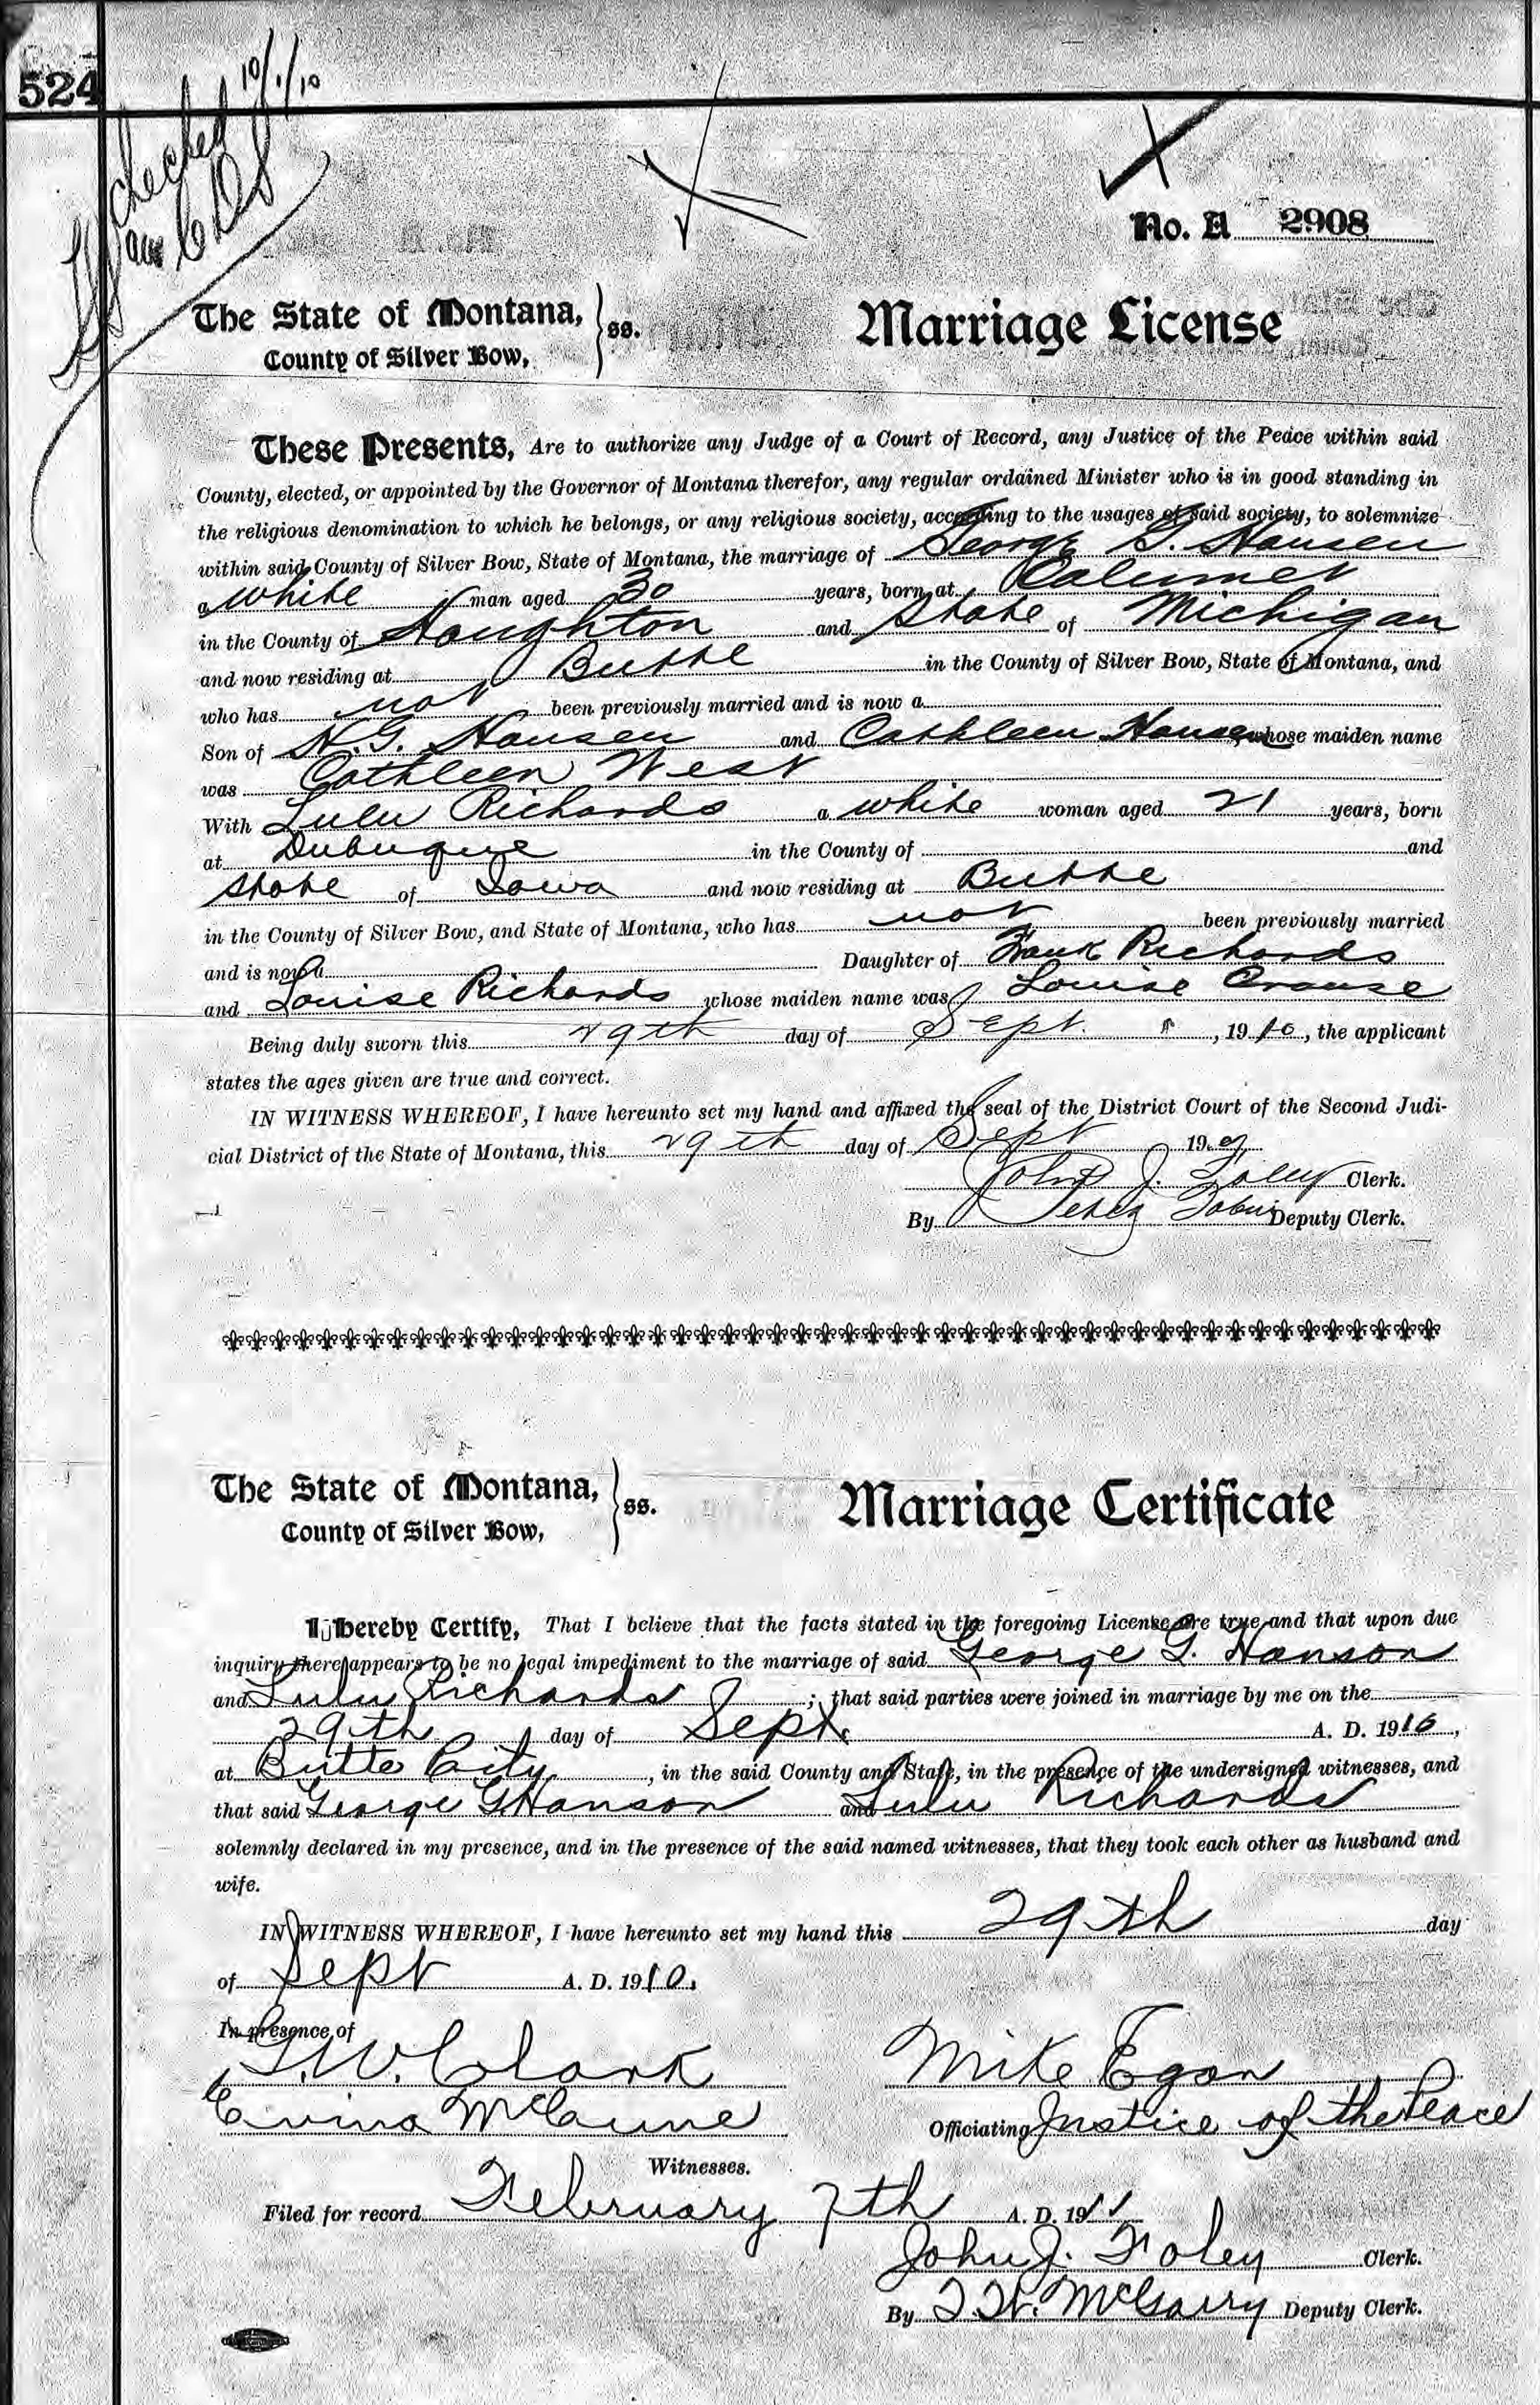 524
checked 10/1/10
No. A 2908
The State of Montana, ss. Marriage License
County of Silver Bow,
These Presents, Are to authorize any Judge of a Court of Record, any Justice of the Peace within said
County, elected, or appointed by the Governor of Montana therefor, any regular ordained Minister who is in good standing in
the religious denomination to which he belongs, or any religious society, according to the usages of said society, to solemnize
within said County of Silver Bow, State of Montana, the marriage of George G. Hansen
a white man aged 30 years, born at Calumet
in the County of Houghton and State of Michigan
and now residing at Butte in the County of Silver Bow, State of Montana, and
who has not been previously married and is now a
Son of H.G. Hansen and Cathleen Hansen whose maiden name
was Cathleen West
With Lulu Richards a white woman aged 21 years, born
at Dubuque in the County of and
State of Iowa and now residing at Butte
in the County of Silver Bow, and State of Montana, who has not been previously married
and is now a Daughter of Frank Richards
and Louise Richards whose maiden name was Louise Crause
Being duly sworn this 29th day of Sept. , 1910, the applicant
states the ages given are true and correct.
IN WITNESS WHEREOF, I have hereunto set my hand and affixed the seal of the District Court of the Second Judi-
cial District of the State of Montana, this 29th day of Sept 19
John J. Foley Clerk.
By Tobin Deputy Clerk.
The State of Montana, ss. Marriage Certificate
County of Silver Bow,
I hereby Certify, That I believe that the facts stated in the foregoing License are true and that upon due
inquiry there appears to be no legal impediment to the marriage of said George G. Hanson
and Lulu Richards ; that said parties were joined in marriage by me on the
29th day of Sept. A. D. 1910,
at Butte City, in the said County and State, in the presence of the undersigned witnesses, and
that said George G Hanson and Lulu Richards
solemnly declared in my presence, and in the presence of the said named witnesses, that they took each other as husband and
wife.
IN WITNESS WHEREOF, I have hereunto set my hand this 29th day
of Sept A. D. 1910.
In presence of
G.W. Clark Mike Egan
McCune Officiating Justice of the Peace
Witnesses.
Filed for record February 7th A. D. 1911
John J. Foley Clerk.
By McGarry Deputy Clerk.